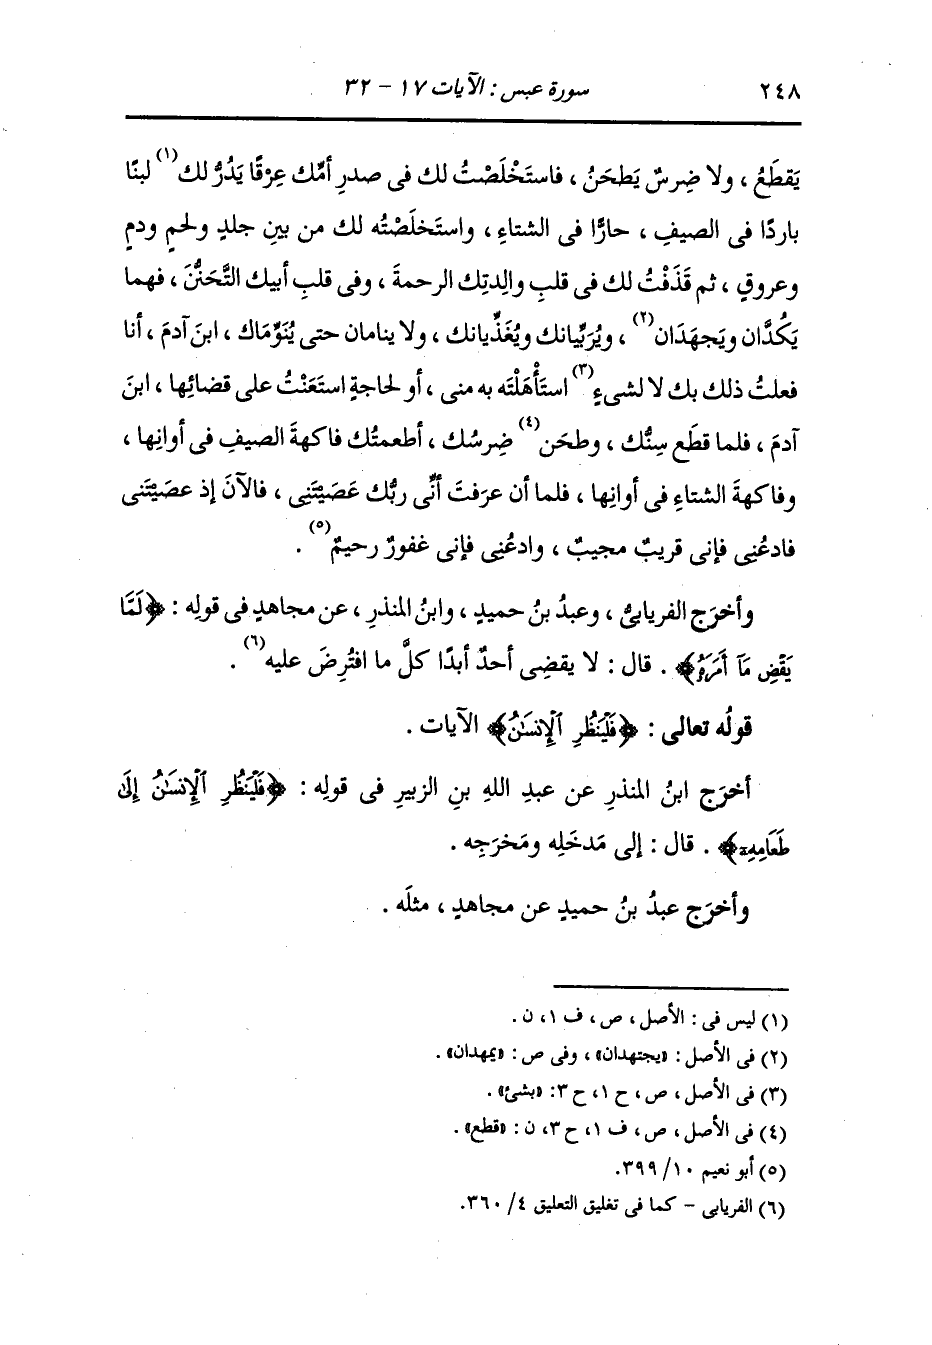 ٢٤٨
سورة عبس : الآيات ١٧ - ٣٢
يَقطَعُ ، ولا ضِرسٌ يَطحَنُ ، فاستَخْلَصْتُ لك فى صدرِ أمِّك عِرْقًا يَدُرُّ لك(١) لبنًا
باردًا فى الصيفِ ، حارًّا فى الشتاءِ ، واستَخلَصْتُه لك من بينِ جلدٍ ولحمٍ ودمٍ
وعروقٍ ، ثم قَذَفْتُ لك فى قلبِ والِدتِك الرحمةَ ، وفى قلبِ أبيك التَّحَنُّنَ ، فهما
يَكُدَّان ويَجهَدَان(٢) ، ويُرَبِّيانك ويُغَذِّيانك ، ولا ينامان حتى يُنَوِّمَاك ، ابنَ آدمَ ، أنا
فعلتُ ذلك بك لا لشىءٍ(٣) استَأْهَلْتَه به منى ، أو لحاجةٍ استَعَنْتُ على قضائِها ، ابنَ
آدمَ ، فلما قطَع سِنُّك ، وطحَن(٤) ضِرسُك ، أطعمتُك فاكهةَ الصيفِ فى أوانِها ،
وفاكهةَ الشتاءِ فى أوانِها ، فلما أن عرَفتَ أنِّى ربُّك عَصَيْتَنِى ، فالآنَ إذ عصَيْتَنى
فادعُنِى فإنى قريبٌ مجيبٌ ، وادعُنِى فإنى غفورٌ رحيمٌ(٥) .
وأخرَج الفريابىُّ ، وعبدُ بنُ حميدٍ ، وابنُ المنذرِ ، عن مجاهدٍ فى قولِه : ﴿لَمَّا
يَقْضِ مَآ أَمَرَهُۥ﴾ . قال : لا يقضِى أحدٌ أبدًا كلَّ ما افتُرِضَ عليه(٦) .
قولُه تعالى : ﴿فَلْيَنظُرِ ٱلْإِنسَٰنُ﴾ الآيات .
أخرَج ابنُ المنذرِ عن عبدِ اللهِ بنِ الزبيرِ فى قولِه : ﴿فَلْيَنظُرِ ٱلْإِنسَٰنُ إِلَىٰ
طَعَامِهِۦٓ﴾ . قال : إلى مَدخَلِه ومَخرَجِه .
وأخرَج عبدُ بنُ حميدٍ عن مجاهدٍ ، مثلَه .
(١) ليس فى : الأصل ، ص ، ف ١، ن .
(٢) فى الأصل : «يجتهدان» ، وفى ص : «يمهدان» .
(٣) فى الأصل ، ص ، ح ١، ح ٣: «بشئ» .
(٤) فى الأصل ، ص ، ف ١، ح ٣، ن : «قطع» .
(٥) أبو نعيم ١٠/ ٣٩٩.
(٦) الفريابى - كما فى تغليق التعليق ٤/ ٣٦٠.